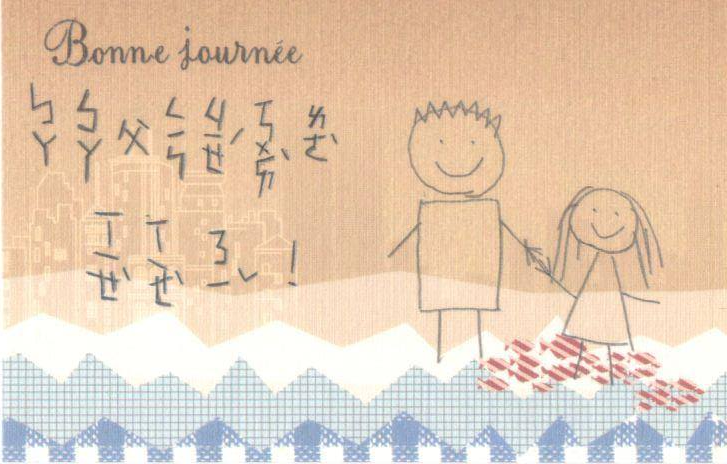 Bonne journée
ㄅㄚ ㄅㄚ 父 ㄑㄧㄣ ㄐㄧㄝˊ ㄎㄨㄞˋ ㄌㄜˋ
ㄒㄧㄝˋ ㄒㄧㄝˋ ㄋㄧˇ !